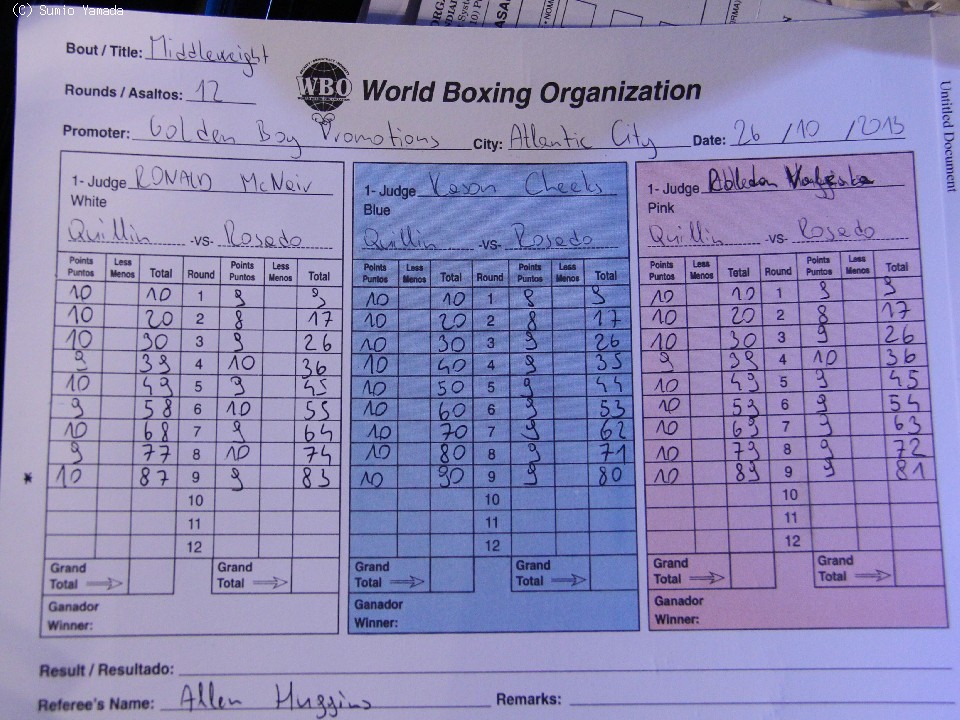 (C) Sumio Yamada
Bout / Title: Middleweight
Rounds / Asaltos: 12
WBO World Boxing Organization
Promoter: Golden Boy Promotions City: Atlantic City Date: 26 / 10 / 2013
Untitled Document
1- Judge RONALD McNair 1- Judge Cheeks 1- Judge
White Blue Pink
Quillin -vs- Rosado Quillin -vs- Rosado Quillin -vs- Rosado
Points Puntos Less Menos Total Round Points Puntos Less Menos Total Points Puntos Less Menos Total Round Points Puntos Less Menos Total Points Puntos Less Menos Total Round Points Puntos Less Menos Total
10 10 1 9 9 10 10 1 8 9 10 10 1 9 9
10 20 2 8 17 10 20 2 8 17 10 20 2 8 17
10 30 3 9 26 10 30 3 9 26 10 30 3 9 26
9 39 4 10 36 10 40 4 9 35 9 39 4 10 36
10 49 5 9 45 10 50 5 9 44 10 49 5 9 45
9 58 6 10 55 10 60 6 9 53 10 59 6 9 54
10 68 7 9 64 10 70 7 9 62 10 69 7 9 63
9 77 8 10 74 10 80 8 9 71 10 79 8 9 72
* 10 87 9 9 83 10 90 9 9 80 10 89 9 9 81
10 10 10
11 11 11
12 12 12
Grand Total Grand Total Grand Total Grand Total Grand Total Grand Total
Ganador Ganador Ganador
Winner: Winner: Winner:
Result / Resultado:
Referee's Name: Allen Huggins Remarks: